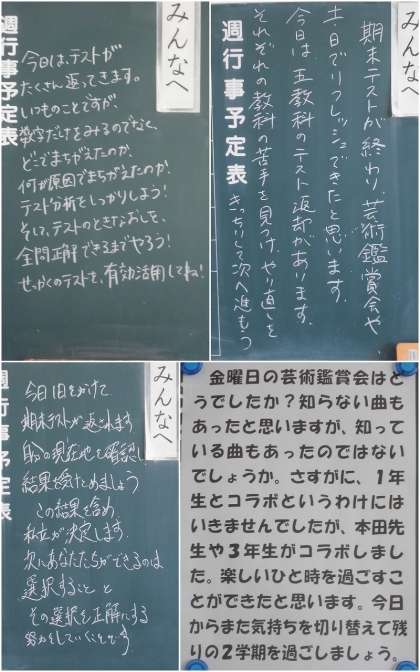 みんなへ
週行事予定表
今日は、テストが
たくさん返ってきます。
いつものことですが、
数字だけをみるのでなく、
どこでまちがえたのか、
何が原因でまちがえたのか、
テスト分析をしっかりしよう!
そして、テストのときなおしを、
全問正解できるまでやろう!
せっかくのテストを、有効活用してね!
みんなへ
週行事予定表
期末テストが終わり、芸術鑑賞会や
土日でリフレッシュできたと思います。
今日は、五教科のテスト返却があります。
それぞれの教科の苦手を見つけ、やり直しを
きっちりして次へ進もう
みんなへ
今日1日をかけて
期末テストが返されます
自分の現在地を確認し
結果を受けとめましょう
この結果を含め、
私立が決定します。
次にあなたたちができるのは
選択すること と
その選択を正解にする
努力をしていくことです
金曜日の芸術鑑賞会はど
うでしたか?知らない曲も
あったと思いますが、知って
いる曲もあったのではない
でしょうか。さすがに、1年
生とコラボというわけには
いきませんでしたが、本田先
生や3年生がコラボしまし
た。楽しいひと時を過ごすこ
とができたと思います。今日
からまた気持ちを切り替えて残
りの2学期を過ごしましょう。